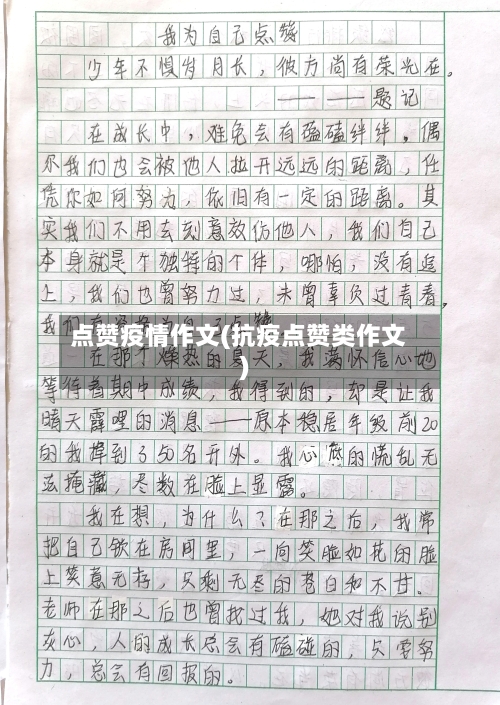 我为自己点赞
少年不惧岁月长，彼方尚有荣光在。
————题记
在成长中，难免会有磕磕绊绊。偶
尔我们也会被他人拉开远远的距离，任
凭你如何努力，依旧有一定的距离。其
实我们不用去刻意效仿他人，我们自己
本身就是个独特的个体，哪怕，没有追
上，我们也曾努力过，未曾辜负过青春。
我们
点赞疫情作文(抗疫点赞类作文
)
在那个燥热的夏天，我满怀信心地
等待着期中成绩，我得到的，却是让我
晴天霹雳的消息——原本稳居年级前20
的我掉到了50名开外。我心底的慌乱无
法掩藏，尽数在脸上显露。
我在想，为什么？在那之后，我常
把自己锁在房间里，一向笑脸如花的脸
上笑意无存，只剩无尽的苍白和不甘。
老师在那之后也曾找过我，她对我说别
灰心，人的成长总会有磕碰的，只要努
力，总会有回报的。